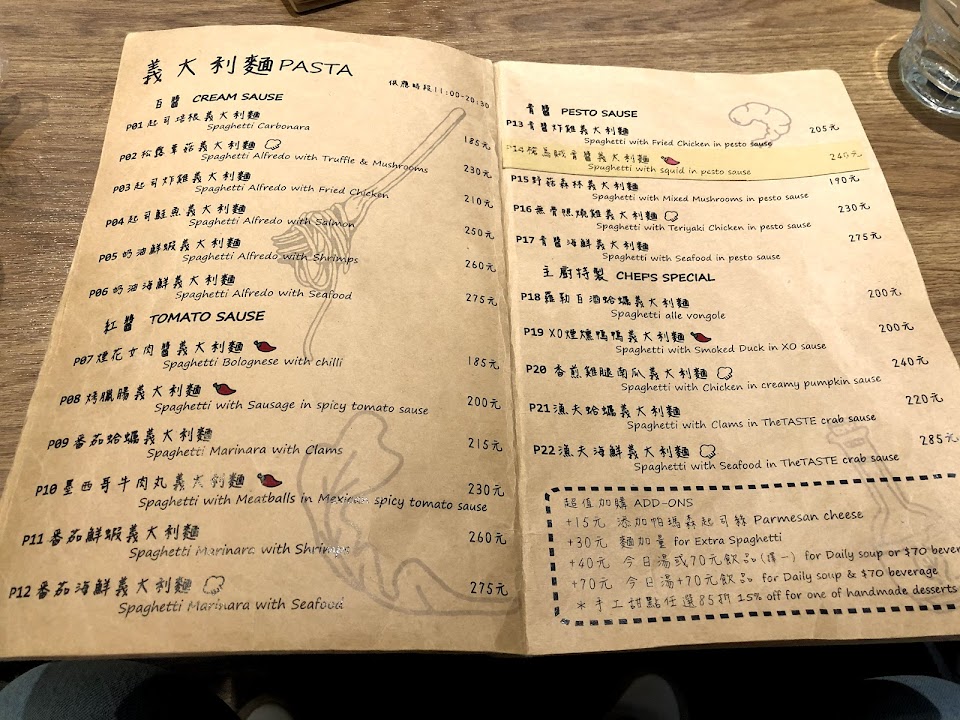 義大利麵 PASTA
供應時段11:00-20:30
白醬 CREAM SAUSE
P01 起司培根義大利麵 185元
Spaghetti Carbonara
P02 松露蕈菇義大利麵 230元
Spaghetti Alfredo with Truffle & Mushrooms
P03 起司炸雞義大利麵 210元
Spaghetti Alfredo with Fried Chicken
P04 起司鮭魚義大利麵 250元
Spaghetti Alfredo with Salmon
P05 奶油鮮蝦義大利麵 260元
Spaghetti Alfredo with Shrimps
P06 奶油海鮮義大利麵 275元
Spaghetti Alfredo with Seafood
紅醬 TOMATO SAUSE
P07 煙花女肉醬義大利麵 185元
Spaghetti Bolognese with chilli
P08 烤臘腸義大利麵 200元
Spaghetti with Sausage in spicy tomato sause
P09 番茄蛤蠣義大利麵 215元
Spaghetti Marinara with Clams
P10 墨西哥牛肉丸義大利麵 230元
Spaghetti with Meatballs in Mexican spicy tomato sause
P11 番茄鮮蝦義大利麵 260元
Spaghetti Marinara with Shrimps
P12 番茄海鮮義大利麵 275元
Spaghetti Marinara with Seafood
青醬 PESTO SAUSE
P13 青醬炸雞義大利麵 205元
Spaghetti with Fried Chicken in pesto sause
P14 椒烏賊青醬義大利麵 240元
Spaghetti with squid in pesto sause
P15 野菇森林義大利麵 190元
Spaghetti with Mixed Mushrooms in pesto sause
P16 無骨照燒雞義大利麵 230元
Spaghetti with Teriyaki Chicken in pesto sause
P17 青醬海鮮義大利麵 275元
Spaghetti with Seafood in pesto sause
主廚特製 CHEF'S SPECIAL
P18 羅勒白酒蛤蠣義大利麵 200元
Spaghetti alle vongole
P19 XO煙燻鴨鴨義大利麵 200元
Spaghetti with Smoked Duck in XO sause
P20 香煎雞腿南瓜義大利麵 240元
Spaghetti with Chicken in creamy pumpkin sause
P21 漁夫蛤蠣義大利麵 220元
Spaghetti with Clams in TheTASTE crab sause
P22 漁夫海鮮義大利麵 285元
Spaghetti with Seafood in TheTASTE crab sause
超值加購 ADD-ONS
+15元 添加帕瑪森起司絲 Parmesan cheese
+30元 麵加量 for Extra Spaghetti
+40元 今日湯或70元飲品(擇一) for Daily soup or $70 bever
+70元 今日湯+70元飲品 for Daily soup & $70 beverage
*手工甜點任選85折 15% off for one of handmade desserts